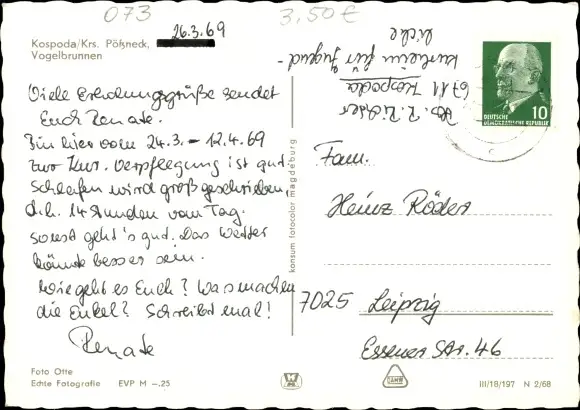 073
3,50 €
26.3.69
Kospoda/Krs. Pößneck,
Vogelbrunnen
Viele Erholungsgrüße sendet
Euch Renate.
Bin hier vom 24.3. – 12.4.69
zur Kur. Verpflegung ist gut.
Schlafen wird groß geschrieben,
d.h. 14 Stunden vom Tag.
sonst geht's gut. Das Wetter
könnte besser sein.
Wie geht es Euch? Was machen
die Enkel? Schreibt mal!
Renate
Foto Otte
Echte Fotografie EVP M –.25
konsum fotocolor magdeburg
Abs. R. Richter
6711 Kospoda
Kurheim für Jugend-
liche
DEUTSCHE
DEMOKRATISCHE REPUBLIK
10
Fam.
Heinz Röder
7025 Leipzig
Essener Str. 46
III/18/197 N 2/68